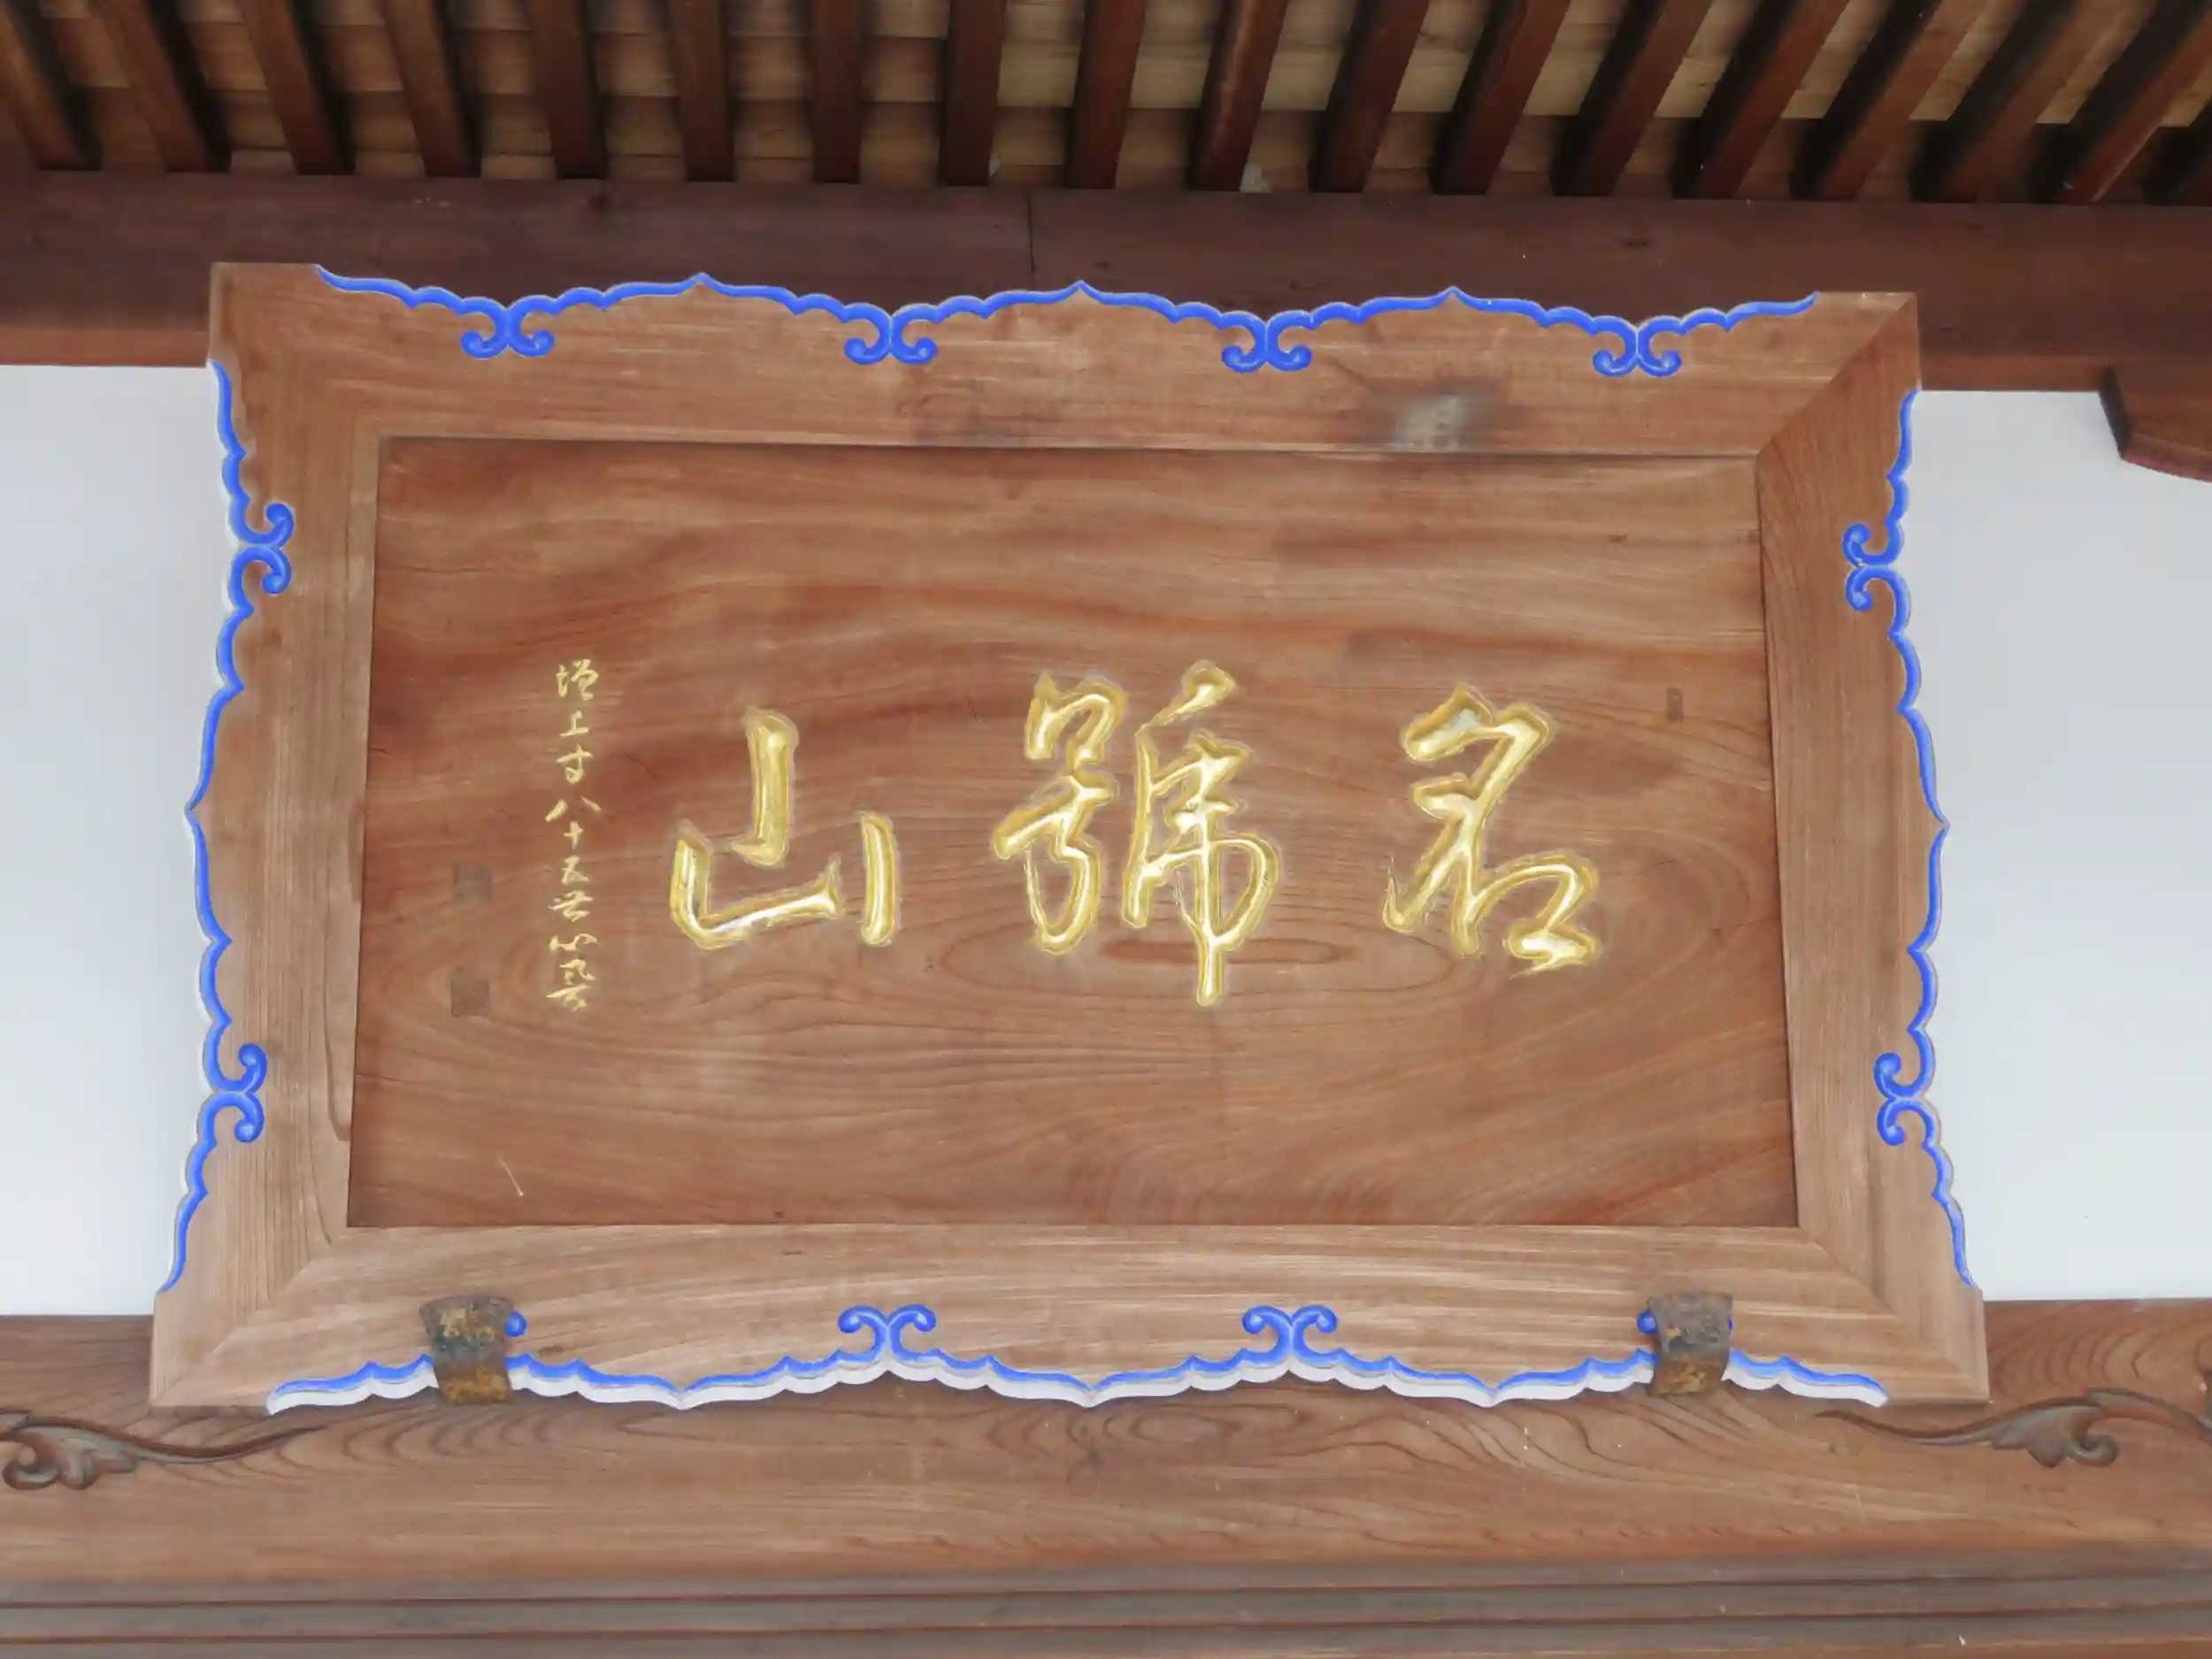 名號山
増上寺八十五世心誉